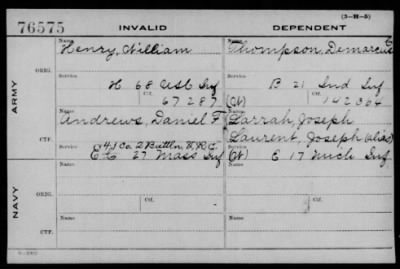 (3-H-5)
76575 INVALID DEPENDENT
Name Name
Henry, William Thompson, Demarcus E
ORIG.
Service Service
H 68 USC Inf B 21 Ind Inf
Ctf. Ctf.
67287 (Ct) 142364
ARMY
Name Name
Andrews, Daniel F Darrah, Joseph
Laurent, Joseph (alias)
ORIG.
Service Service
45 Co. 2 Battln, V.R.C.
E 27 Mass Inf (Ct) E 17 Mich Inf
Ctf. Ctf.
NAVY
Name Name
ORIG.
Service Service
Ctf. Ctf.
Name Name